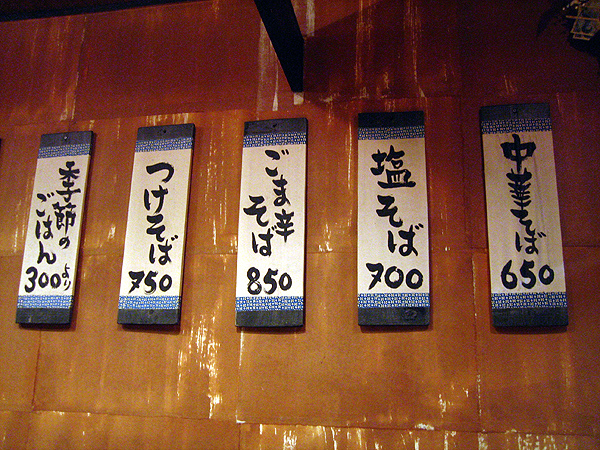 中華そば
650
塩そば
700
ごま辛
そば
850
つけそば
750
季節の
ごはん
300より